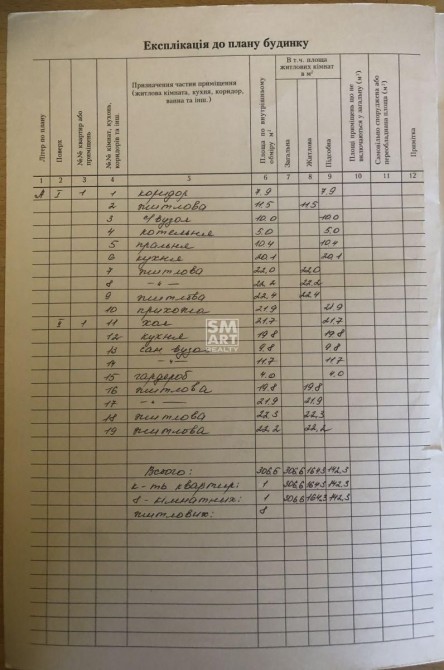 Експлікація до плану будинку
Літер по плану
Поверх
№№ квартир або приміщень
№№ кімнат, кухонь, коридорів та інш.
Призначення частин приміщення
(житлова кімната, кухня, коридор,
ванна та інш.)
Площа по внутрішньому обміру м²
В т.ч. площа
житлових кімнат
в м²
Загальна
Житлова
Підсобна
Площі приміщень що не включаються у загальну (м²)
Самовільно споруджена або переобладнана площа (м²)
Примітка
1 2 3 4 5 6 7 8 9 10 11 12
А I 1 1 коридор 7.9 7.9
2 житлова 11.5 11.5
3 с/вузол 10.0 10.0
4 котельня 5.0 5.0
5 пральня 10.4 10.4
6 кухня 20.1 20.1
7 житлова 22.0 22.0
8 — " — 22.2 22.2
9 житлова 22.4 22.4
10 прихожа 21.9 21.9
II 1 11 хол 21.7 21.7
12 кухня 19.8 19.8
13 сан. вузол 9.8 9.8
14 — " — 11.7 11.7
15 гардероб 4.0 4.0
16 житлова 19.8 19.8
17 — " — 21.9 21.9
18 житлова 22.3 22.3
19 житлова 22.2 22.2
SM
ART
REALTY
Всього: 306.6 306.6 164.3 142.3
к-ть квартир: 1 306.6 164.3 142.3
8-кімнатних: 1 306.6 164.3 142.3
житлових: 8